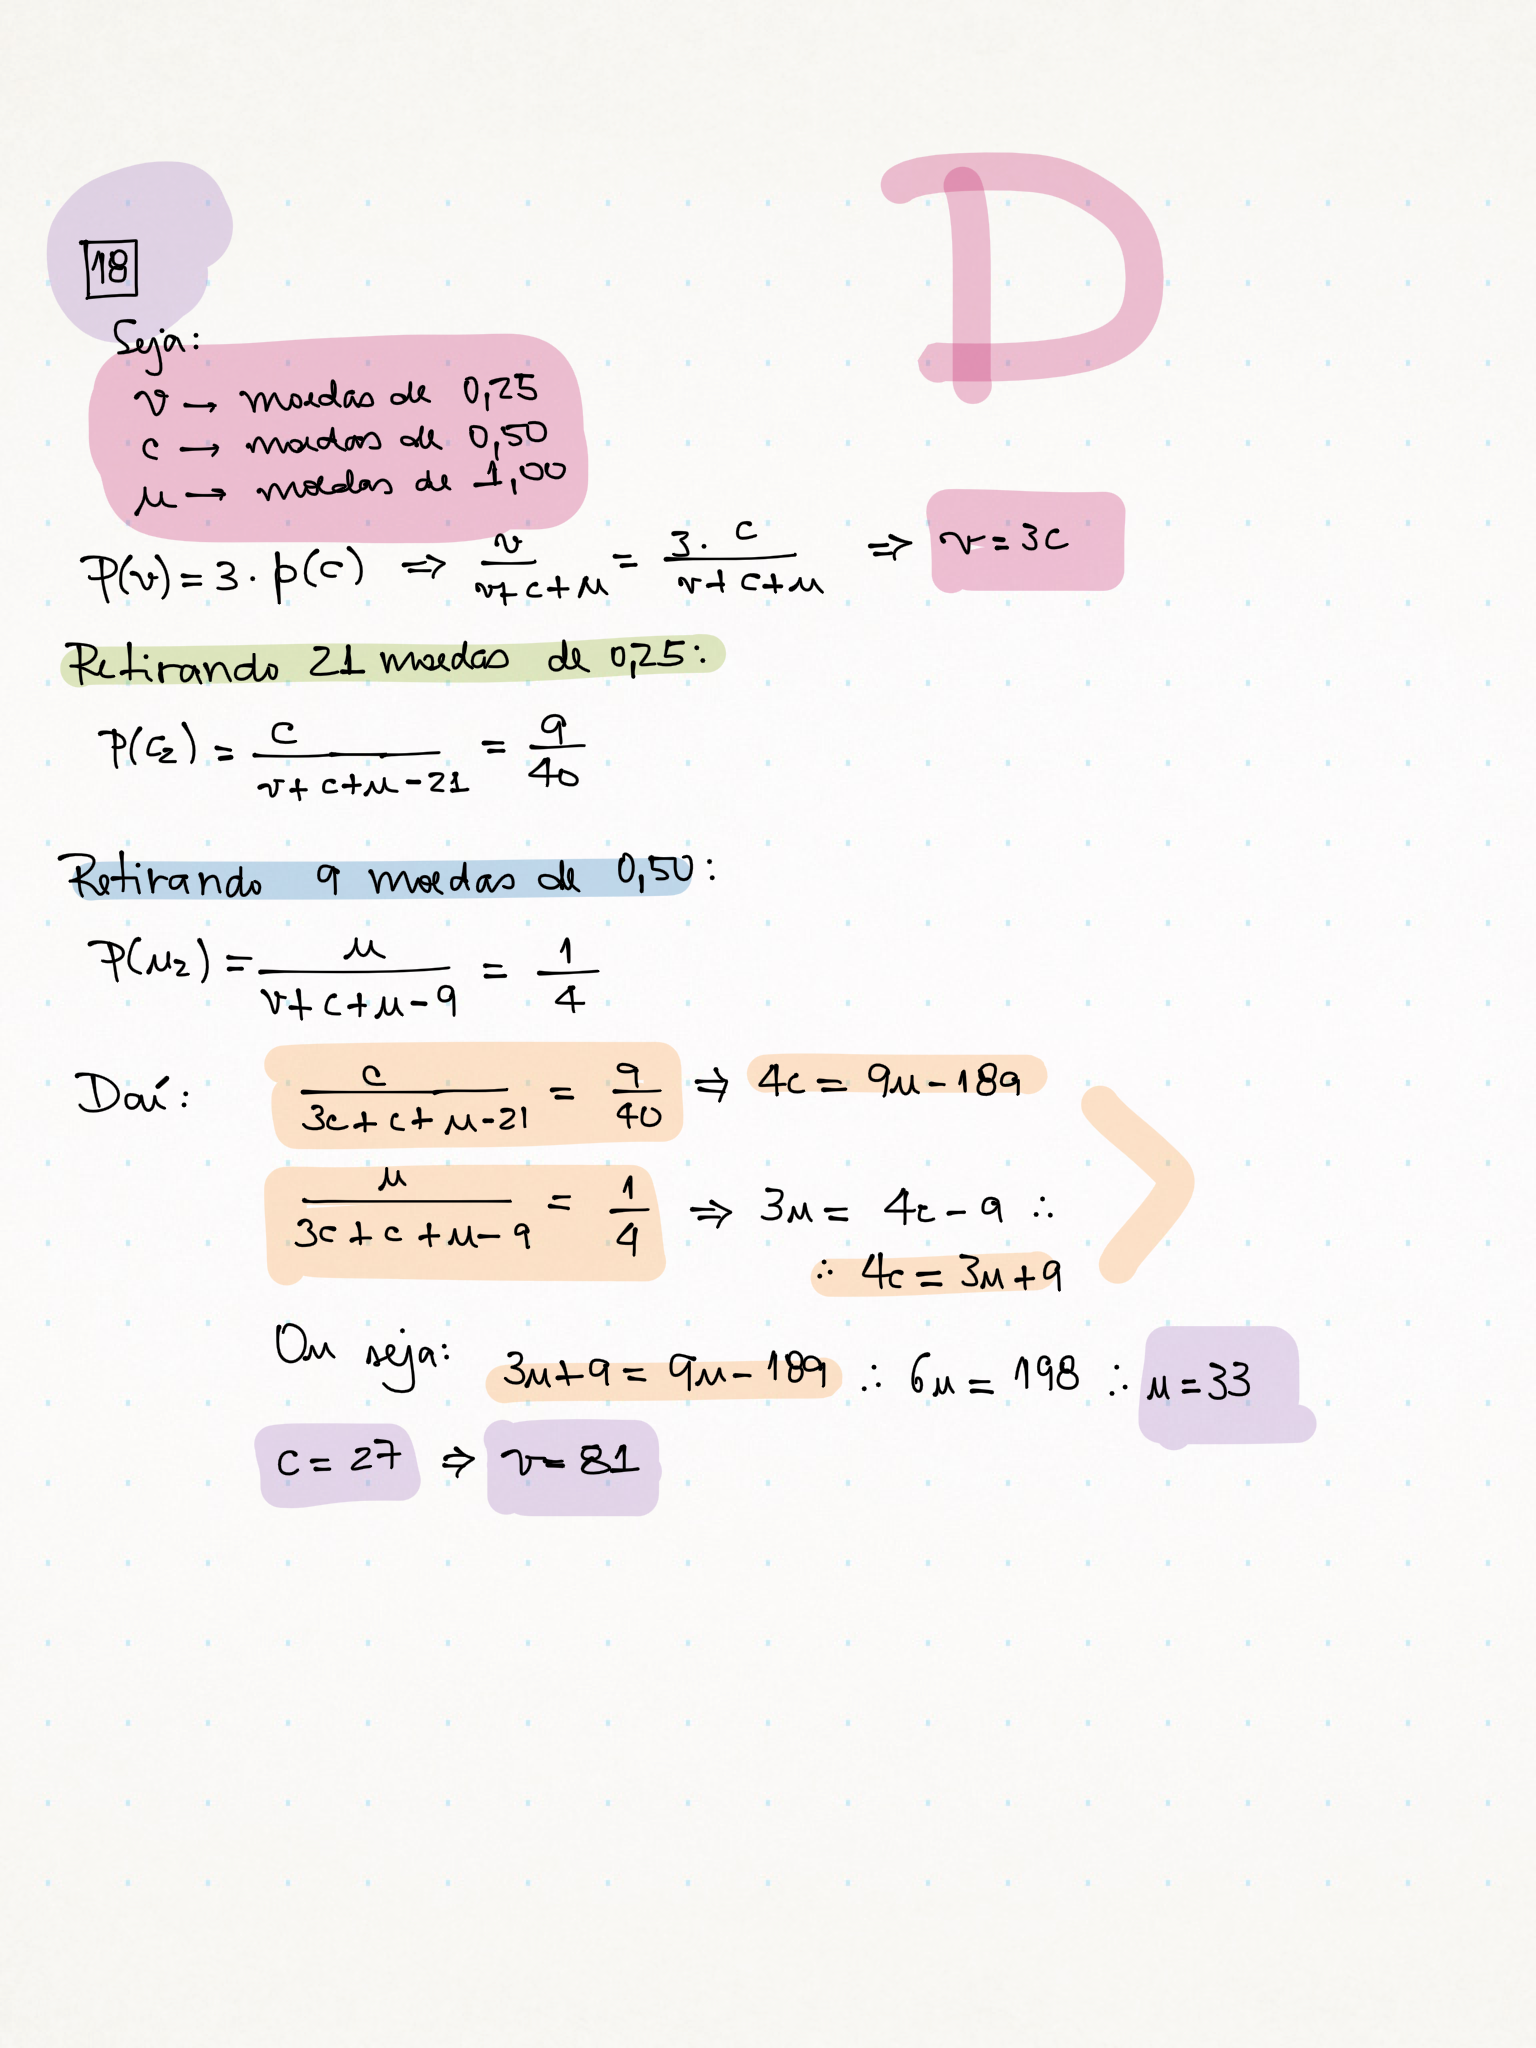 D
18
Seja:
v → moedas de 0,25
c → moedas de 0,50
u → moedas de 1,00
P(v) = 3 · p(c) ⇒ v/(v+c+u) = 3·c/(v+c+u) ⇒ v = 3c
Retirando 21 moedas de 0,25:
P(c₂) = c/(v+c+u-21) = 9/40
Retirando 9 moedas de 0,50:
P(u₂) = u/(v+c+u-9) = 1/4
Daí: c/(3c+c+u-21) = 9/40 ⇒ 4c = 9u-189
u/(3c+c+u-9) = 1/4 ⇒ 3u = 4c-9 ∴
∴ 4c = 3u+9
Ou seja: 3u+9 = 9u-189 ∴ 6u = 198 ∴ u = 33
c = 27 ⇒ v = 81